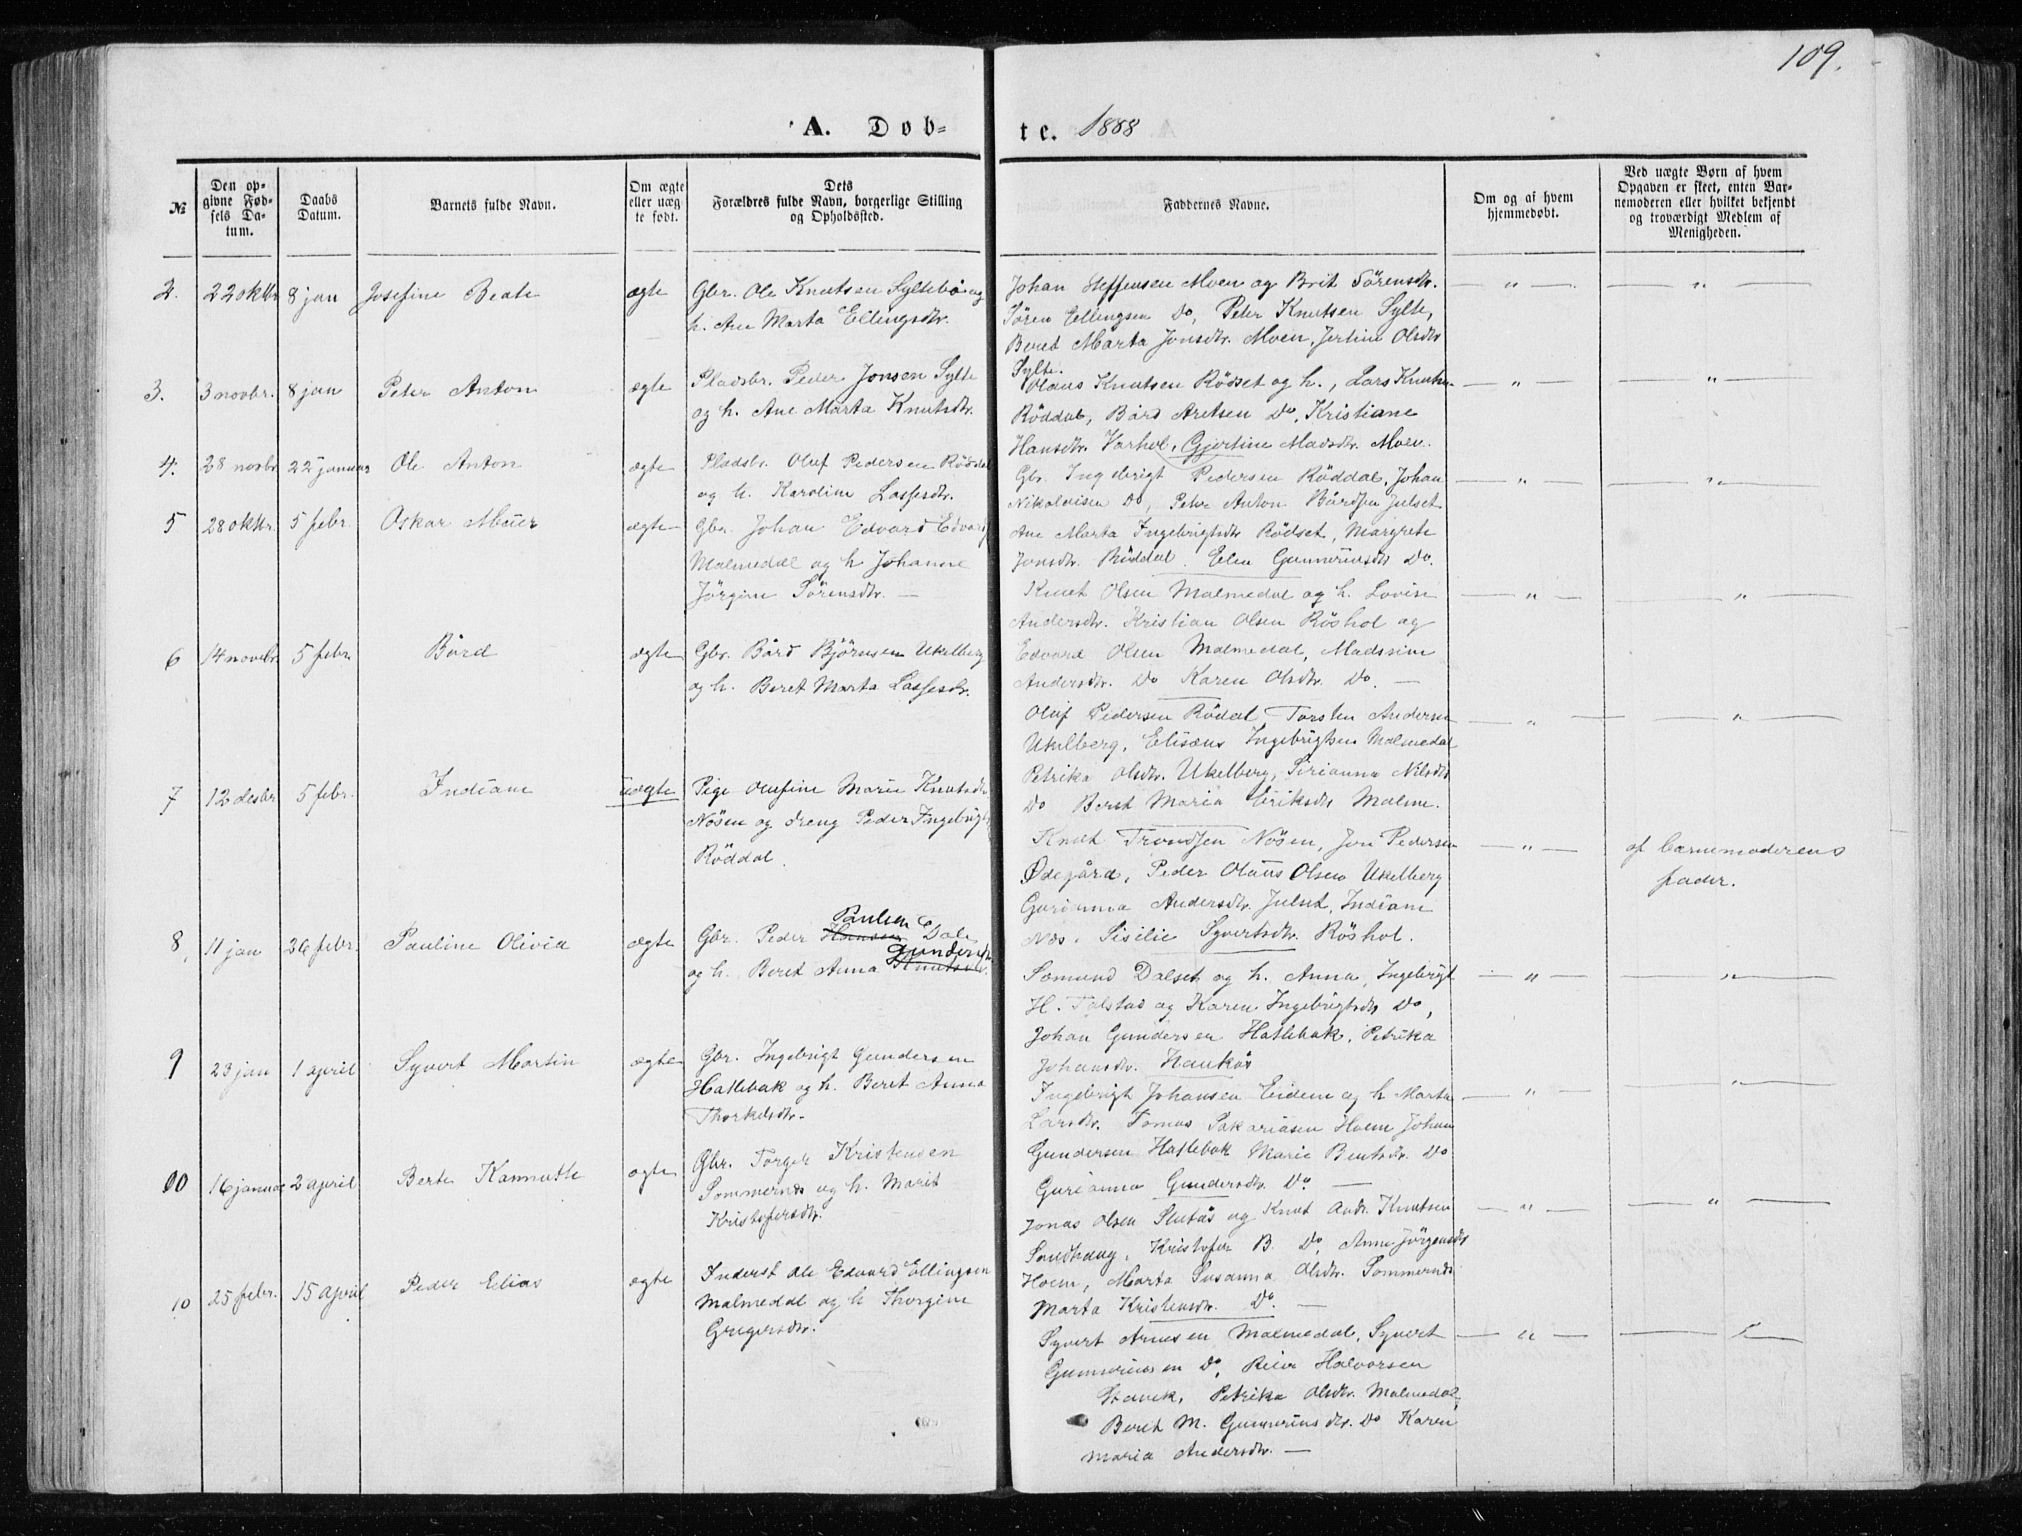 109.
A. Døb-
te. 1888
№
Den op-
givne Fød-
sels Da-
tum.
Daabs
Datum.
Barnets fulde Navn.
Om ægte
eller uæg-
te født.
Dets
Forældres fulde Navn, borgerlige Stilling
og Opholdssted.
Faddernes Navne.
Om og af hvem
hjemmedøbt.
Ved uægte Børn af hvem
Opgaven er skeet, enten Bar-
nemoderen eller hvilket bekjendt
og troværdigt Medlem af
Menigheden.
2. 22 oktbr 8 jan Josefine Beate ægte
Gbr. Ole Knutsen Syltebø og
h. Ane Marta Ellingsdtr.
Johan Steffensen Moen og Brit Sörensdtr.
Sören Ellingsen Do, Peter Knutsen Sylte,
Beret Marta Jonsdtr. Moen, Jertine Olsdtr
Sylte.
— " — — " —
3. 3 novbr. 8 jan Peter Anton ægte
Pladsbr. Peder Jonsen Sylte
og h. Ane Marta Knutsdtr.
Olaus Knutsen Rödset og h., Lars Knutsen
Röddal, Bård Aretsen Do, Kristiane
Hansdtr. Varhol, Gjertine Madsdtr. Moen.
— " — — " —
4. 28 novbr 22 januar Ole Anton ægte
Pladsbr. Oluf Pedersen Röddal
og h. Karoline Lassesdtr.
Gbr. Ingebrigt Pedersen Röddal, Johan
Nikolaisen Do, Peter Anton Bårdsen Julset
Ane Marta Ingebrigtsdtr Rödset, Margrete
Jonsdtr. Röddal. Elen Gunneriusdtr Do.
— " — — " —
5 28 oktbr. 5 febr. Oskar Meier ægte
Gbr. Johan Edvard Edvards
Malmedal og h Johanne
Jörgine Sörensdtr. —
Knut Olsen Malmedal og h. Lovise
Andersdtr. Kristian Olsen Röshol og
Edvard Olsen Malmedal, Madssine
Andersdtr. Do Karen Olsdtr. Do. —
— " — — " —
6 14 novbr 5 febr. Bård ægte
Gbr. Bård Björnsen Ukelberg
og h. Beret Marta Lassesdtr.
Oluf Pedersen Rödal, Torsten Andersen
Ukelberg, Elisæus Ingebrigtsen Malmedal
Petrika Olsdtr. Ukelberg, Sirianna Nilsdtr
Do Beret Maria Eriksdtr Malme.
— " — — " —
7 12 desbr 5 febr. Indiane uægte
Pige Olufine Marie Knutsdtr
Nösen og dreng Peder Ingebrigts
Röddal.
Knut Trondsen Nösen, Jon Pedersen
Ødegård, Peder Olaus Olsen Ukelberg
Gurianna Andersdtr. Julset, Indiane
Næs. Sisilie Syvertsdtr. Röshol.
— " —
af barnemoderens
fader.
8, 11 jan 26 febr. Pauline Olivia ægte
Paulsen
Gbr. Peder Hansen Dale
Gundersdtr
og h. Beret Anna Knutsdtr.
Somund Dalset og h. Anna, Ingebrigt
H. Tolstad og Karen Ingebrigtsdtr Do,
Johan Gundersen Hatlebak, Petrika
Johansdtr. Haukås
— " — — " —
9 23 jan 1 april Syvert Martin ægte
Gbr. Ingebrigt Gundersen
Hatlebak og h. Beret Anna
Thorkelsdtr.
Ingebrigt Johansen Eidem og h Marta
Larsdtr. Tomas Sakariasen Hoem Johan
Gundersen Hatlebak Marie Bentsdtr. Do
Gurianna Gundersdtr. Do. —
— " — — " —
10 16 januar 2 april Berte Kannutte ægte
Gbr. Torger Kristensen
Sommernes og h. Marit
Kristofersdtr.
Jonas Olsen Slutås og Knut Andr. Knutsen
Sandhaug, Kristofer B. Do, Anne Jörgensdtr
Hoem, Marta Susanna Olsdtr. Sommernes
Marta Kristensdtr. Do. —
— " — — " —
10 25 febr. 15 april Peder Elias ægte
Inderst Ole Edvard Ellingsen
Malmedal og h Thorgine
Gregersdtr.
Syvert Arnesen Malmedal, Syvert
Gunneriussen Do, Peder Halvorsen
Stavik, Petrika Olsdtr. Malmedal,
Beret M. Gunneriusdtr. Do Karen
Maria Andersdtr. —
— " — — " —